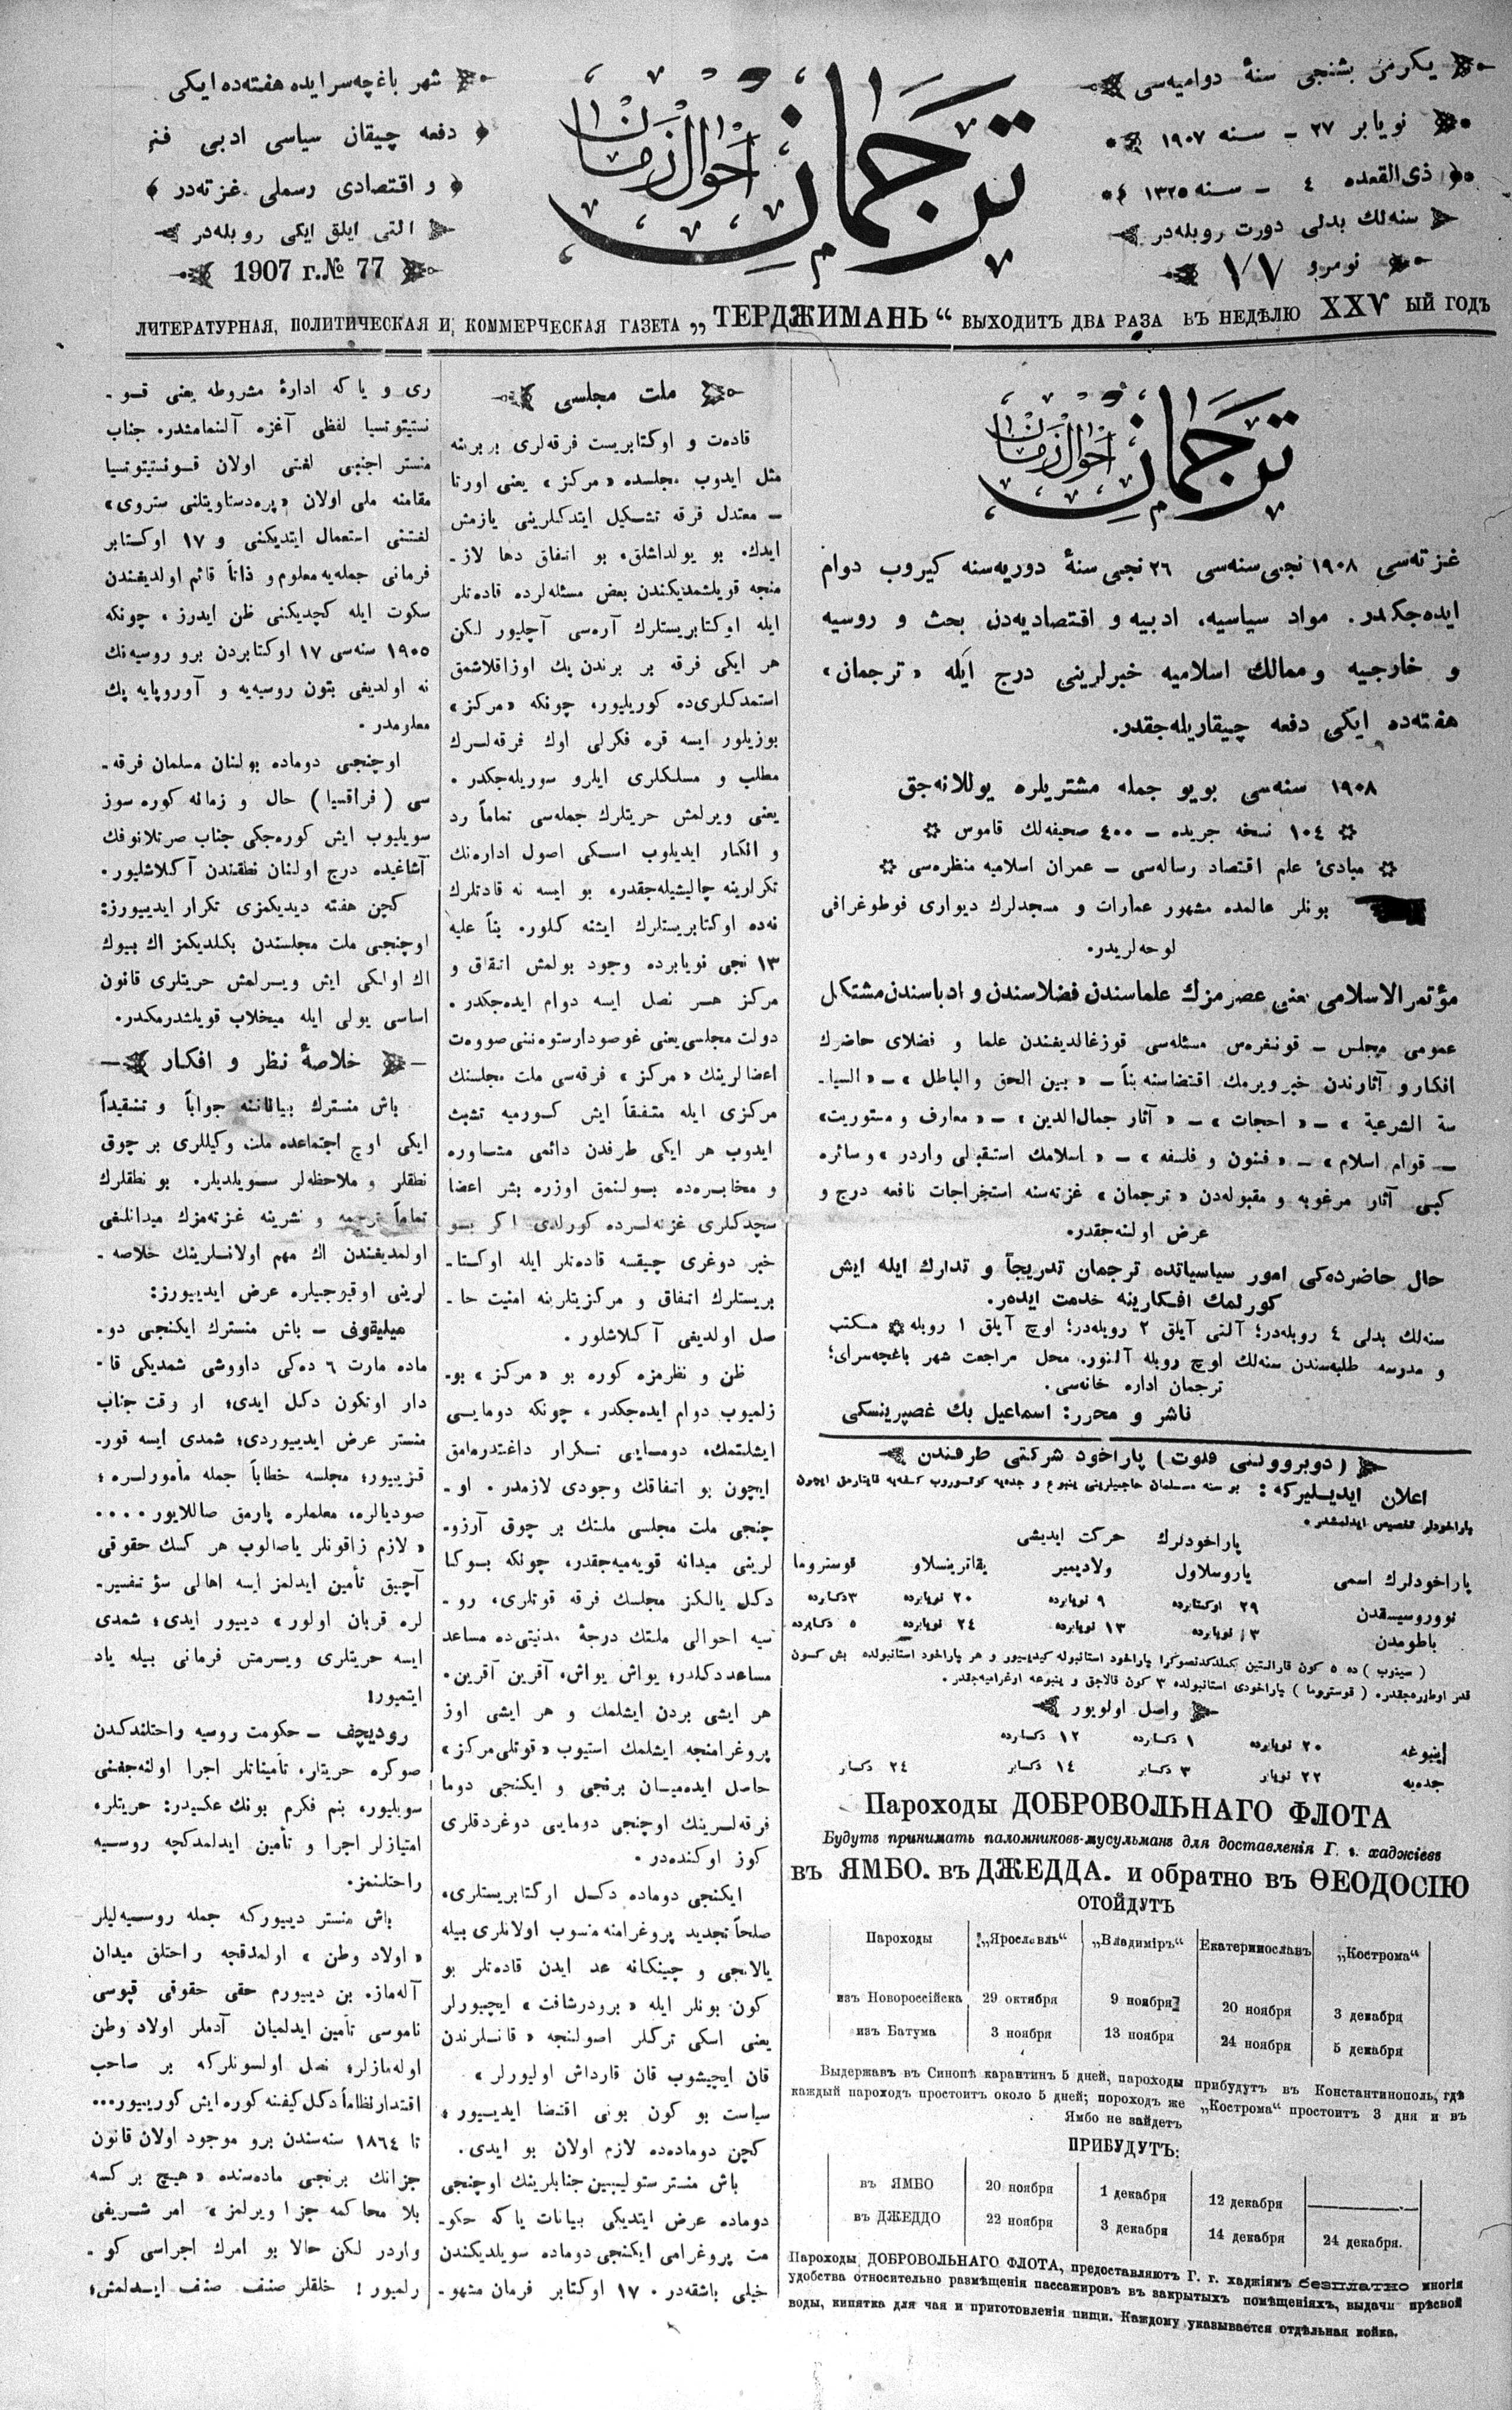 يكرمى بشنجى سنۀ دواميه‌سى
نويابر ٢٧ – سنه ١٩٠٧
ذى القعده ٤ – سنه ١٣٢٥
سنه‌لك بدلى دورت روبله‌در
نومرو ٧٧
ترجمان احوال زمان
شهر باغچه‌سرايده هفته‌ده ايكى
دفعه چيقان سياسى ادبى فنى
و اقتصادى رسملى غزته‌در
التى ايلق ايكى روبله‌در
1907 г. № 77
ЛИТЕРАТУРНАЯ, ПОЛИТИЧЕСКАЯ И КОММЕРЧЕСКАЯ ГАЗЕТА „ТЕРДЖИМАНЪ“ ВЫХОДИТЪ ДВА РАЗА ВЪ НЕДѢЛЮ XXV ЫЙ ГОДЪ
ترجمان احوال زمان
غزته‌سى ١٩٠٨ نجى سنه‌سى ٢٦ نجى سنۀ دوريه‌سنه كيروب دوام
ايده‌جكدر. مواد سياسيه، ادبيه و اقتصاديه‌دن بحث و روسيه
و خارجيه و ممالك اسلاميه خبرلرينى درج ايله «ترجمان»
هفته‌ده ايكى دفعه چيقاريله‌جقدر.
١٩٠٨ سنه‌سى بويو جمله مشتريلره يوللانه‌جق
١٠٤ نسخه جريده – ٤٠٠ صحيفه‌لك قاموس
مبادئ علم اقتصاد رساله‌سى – عمران اسلاميه منظره‌سى
بونلر عالمده مشهور عمارات و مسجدلرك ديوارى فوطوغرافى
لوحه‌لريدر.
مؤتمر الاسلامى يعنى عصرمزك علماسندن فضلاسندن و ادباسندن مشتكل
عمومى مجلس – قونفره‌س مسئله‌سى قوزغالديغندن علما و فضلاى حاضرك
افكار و آثارندن خبر ويرمك اقتضاسنه بناً – «بين الحق والباطل» – «السيا-
سة الشرعية» – «احجات» – «آثار جمال‌الدين» – «معارف و مستوريت»
– قوام اسلام» – «فنون و فلسفه» – «اسلامك استقبالى واردر» و سائره
كبى آثار مرغوبه و مقبوله‌دن «ترجمان» غزته‌سنه استخراجات نافعه درج و
عرض اولنه‌جقدر.
حال حاضرده‌كى امور سياسياتده ترجمان تدريجاً و تدارك ايله ايش
كورلمك افكارينه خدمت ايده‌ر.
سنه‌لك بدلى ٤ روبله‌در؛ آلتى آيلق ٢ روبله‌در؛ اوچ آيلق ١ روبله مكتب
و مدرسه طلبه‌سندن سنه‌لك اوچ روبله آلنور. محل مراجعت شهر باغچه‌سراى؛
ترجمان اداره خانه‌سى.
ناشر و محرر: اسماعيل بك غصپرينسكى
(دوبروولنى فلوت) پاراخود شركتى طرفندن
اعلان ايديليركه: بو سنه مسلمان حاجيلرينى ينبوع و جده‌يه كوتوروب كفه‌يه قايتارمق ايچون
پاراخودلر تخصيص ايدلمشدر.
پاراخودلرك حركت ايديشى
پاراخودلرك اسمى ياروسلاول ولاديمير يقاترينسلاو قوستروما
نووروسيسقدن ٢٩ اوكتابرده ٩ نويابرده ٢٠ نويابرده ٣ دكابرده
باطومدن ٣ نويابرده ١٣ نويابرده ٢٤ نويابرده ٥ دكابرده
(سينوب) ده ٥ كون قارانتين بكلدكدنصوكرا پاراخود استانبوله كيديسيور و هر پاراخود استانبولده بش كسون
قدر اوطوره‌جقدر. (قوستروما) پاراخودى استانبولده ٣ كون قالاجق و ينبوعه اوغراميه‌جقدر.
واصل اولويور
ينبوغه ٢٠ نويابرده ١ دكابرده ١٢ دكابرده
جده‌يه ٢٢ نويابر ٣ دكابر ١٤ دكابر ٢٤ دكابر
Пароходы ДОБРОВОЛЬНАГО ФЛОТА
Будутъ принимать паломниковъ-мусульманъ для доставленія Г. г. хаджіевъ
въ ЯМБО. въ ДЖЕДДА. и обратно въ ѲЕОДОСІЮ
ОТОЙДУТЪ
Пароходы „Ярославль“ „Владиміръ“ Екатеринославъ „Кострома“
изъ Новороссійска 29 октября 9 ноября 20 ноября 3 декабря
изъ Батума 3 ноября 13 ноября 24 ноября 5 декабря
Выдержавъ въ Синопѣ карантинъ 5 дней, пароходы прибудутъ въ Константинополь, гдѣ
каждый пароходъ простоитъ около 5 дней; пороходъ же „Кострома“ простоитъ 3 дня и въ
Ямбо не зайдетъ
ПРИБУДУТЪ:
въ ЯМБО 20 ноября 1 декабря 12 декабря
въ ДЖЕДДО 22 ноября 3 декабря 14 декабря 24 декабря.
Пароходы ДОБРОВОЛЬНАГО ФЛОТА, предоставляютъ Г. г. хаджіямъ безплатно многія
удобства относительно размѣщенія пассажировъ въ закрытыхъ помѣщеніяхъ, выдачи прѣсной
воды, кипятка для чая и приготовленія пищи. Каждому указывается отдѣльная койка.
ملت مجلسى
قاده‌ت و اوكتابريست فرقه‌لرى بربرينه
مثل ايدوب مجلسده «مركز» يعنى اورتا
– معتدل فرقه تشكيل ايتدكلرينى يازمش
ايدك. بو يولداشلق، بو اتفاق دها لاز-
منجه قويلشمديكندن بعض مسئله‌لرده قاده‌تلر
ايله اوكتابريستلرك آره‌سى آچليور لكن
هر ايكى فرقه بر برندن پك اوزاقلاشمق
استمدكلرى‌ده كوريليور، چونكه «مركز»
بوزيلور ايسه قره فكرلى اوك فرقه‌لرك
مطلب و مسلكلرى ايلرو سوريله‌جكدر.
يعنى ويرلمش حريتلرك جمله‌سى تماماً رد
و انكار ايديلوب اسكى اصول اداره‌نك
تكرارينه چاليشيله‌جقدر، بو ايسه نه قادتلرك
نه‌ده اوكتابريستلرك ايشنه كلور. بناً عليه
١٣ نجى نويابرده وجود بولمش اتفاق و
مركز هر نصل ايسه دوام ايده‌جكدر.
دولت مجلسى يعنى غوصودارستوه‌ننى صووه‌ت
اعضالرينك «مركز» فرقه‌سى ملت مجلسنك
مركزى ايله متفقاً ايش كورميه تشبث
ايدوب هر ايكى طرفدن دائمى مشاوره
و مخابره‌ده بولنمق اوزره بشر اعضا
سچدكلرى غزته‌لرده كورلدى اكر بو
خبر دوغرى چيقسه قاده‌تلر ايله اوكتا-
بريستلرك اتفاق و مركزيتلرينه امنيت حا-
صل اولديغى آكلاشلور.
ظن و نظرمزه كوره بو «مركز» بو-
زلميوب دوام ايده‌جكدر، چونكه دومايى
ايشلتمك، دومايى تكرار داغتدرمامق
ايچون بو اتفاقك وجودى لازمدر. او-
چنجى ملت مجلسى ملتك بر چوق آرزو-
لرينى ميدانه قويه‌ميه‌جقدر، چونكه بوكا
دكل يالكز مجلسك فرقه قوتلرى، رو-
سيه احوالى ملتك درجۀ مدنيتى‌ده مساعد
مساعد دكلدر؛ يواش يواش، آقرين آقرين.
هر ايشى بردن ايشلمك و هر ايشى اوز
پروغرامنجه ايشلمك استيوب «قوتلى مركز»
حاصل ايده‌ميان برنجى و ايكنجى دوما
فرقه‌لرينك اوچنجى دومايى دوغردقلرى
كوز اوكنده‌در.
ايكنجى دوماده دكل اوكتابريستلرى،
صلحاً تجديد پروغرامنه منسوب اولانلرى بيله
يالانجى و چينكانه عد ايدن قاده‌تلر بو
كون بونلر ايله «برودرشافت» ايچيورلر
يعنى اسكى تركلر اصولنجه «قانلرندن
قان ايچيشوب قان قارداش اوليورلر»
سياست بو كون بونى اقتضا ايديسيور،
كچن دوماده‌ده لازم اولان بو ايدى.
باش منستر ستوليپين جنابلرينك اوچنجى
دوماده عرض ايتديكى بيانات ياكه حكو-
مت پروغرامى ايكنجى دوماده سويلديكندن
خيلى باشقه‌در. ١٧ اوكتابر فرمان مشهو-
رى و ياكه ادارۀ مشروطه يعنى قو-
نستيتوتسيا لفظى آغزه آلنمامشدر. جناب
منستر اجنبى لغتى اولان قونستيتوتسيا
مقامنه ملى اولان «پره‌دستاويتلنى ستروى»
لغتنى استعمال ايتديكنى و ١٧ اوكتابر
فرمانى جمله‌يه معلوم و ذاتاً قائم اولديغندن
سكوت ايله كچديكنى ظن ايدرز، چونكه
١٩٠٥ سنه‌سى ١٧ اوكتابردن برو روسيه‌نك
نه اولديغى بتون روسيه‌يه و آوروپايه پك
معلومدر.
اوچنجى دوماده بولنان مسلمان فرقه-
سى (فراقسيا) حال و زمانه كوره سوز
سويليوب ايش كوره‌جكى جناب صرتلانوفك
آشاغيده درج اولنان نطقندن آكلاشليور.
كچن هفته ديديكمزى تكرار ايدييورز:
اوچنجى ملت مجلسندن بكلديكمز اك بيوك
اك اولكى ايش ويرلمش حريتلرى قانون
اساسى يولى ايله ميخلاب قويلشدرمكدر.
خلاصۀ نظر و افكار
باش منسترك بياناتنه جواباً و تنقيداً
ايكى اوچ اجتماعده ملت وكيللرى بر چوق
نطقلر و ملاحظه‌لر سويلديلر. بو نطقلرك
تماماً ترجمه و نشرينه غزته‌مزك ميدانلغى
اولمديغندن اك مهم اولانلرينك خلاصه-
لرينى اوقيوجيلره عرض ايدييورز:
ميليقوف – باش منسترك ايكنجى دو-
ماده مارت ٦ ده‌كى داووشى شمديكى قا-
دار اوتكون دكل ايدى؛ او وقت جناب
منستر عرض ايدييوردى؛ شمدى ايسه قور-
قزييور؛ مجلسه خطاباً جمله مأمورلره؛
صوديالره، معلملره پارمق صاللايور....
«لازم زاقونلر ياصالوب هر كسك حقوقى
آچيق تأمين ايدلمز ايسه اهالى سؤ تفسير-
لره قربان اولور» دييور ايدى؛ شمدى
ايسه حريتلرى ويرمش فرمانى بيله ياد
ايتميور!
روديچف – حكومت روسيه راحتلندكدن
صوكره حريتلر، تأميناتلر اجرا اولنه‌جغنى
سويليور، بنم فكرم بونك عكسيدر: حريتلر،
امتيازلر اجرا و تأمين ايدلمدكچه روسيه
راحتلنمز.
باش منستر دييوركه جمله روسيه‌ليلر
«اولاد وطن» اولمدقجه راحتلق ميدان
آله‌ماز. بن دييورم حقى حقوقى قپوسى
ناموسى تأمين ايدلميان آدملر اولاد وطن
اوله‌مازلر؛ نصل اولسونلركه بر صاحب
اقتدار نظاماً دكل كيفنه كوره ايش كورييور...
تا ١٨٦٤ سنه‌سندن برو موجود اولان قانون
جزانك برنجى ماده‌سنده «هيچ بر كسه
بلا محاكمه جزا ويرلمز» امر شريفى
واردر لكن حالا بو امرك اجراسى كو-
رلميور! خلقلر صنف صنف ايدلمش؛